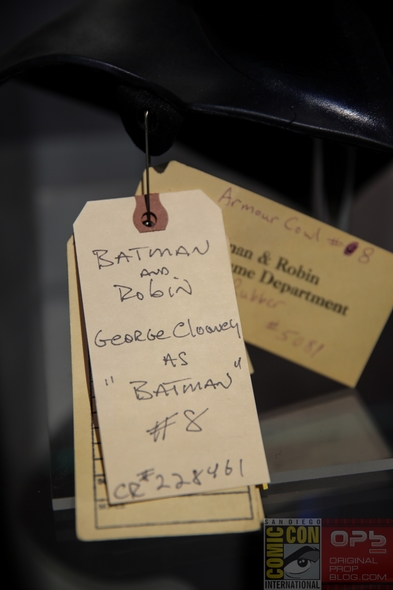 BATMAN
AND
Robin
GEORGE Clooney
AS
"BATMAN"
#8
CR#228461
Armour Cowl #8
man & Robin
ume Department
Rubber
#5081
SAN DIEGO
COMIC CON
INTERNATIONAL
OPB
ORIGINAL
PROP
BLOG.COM